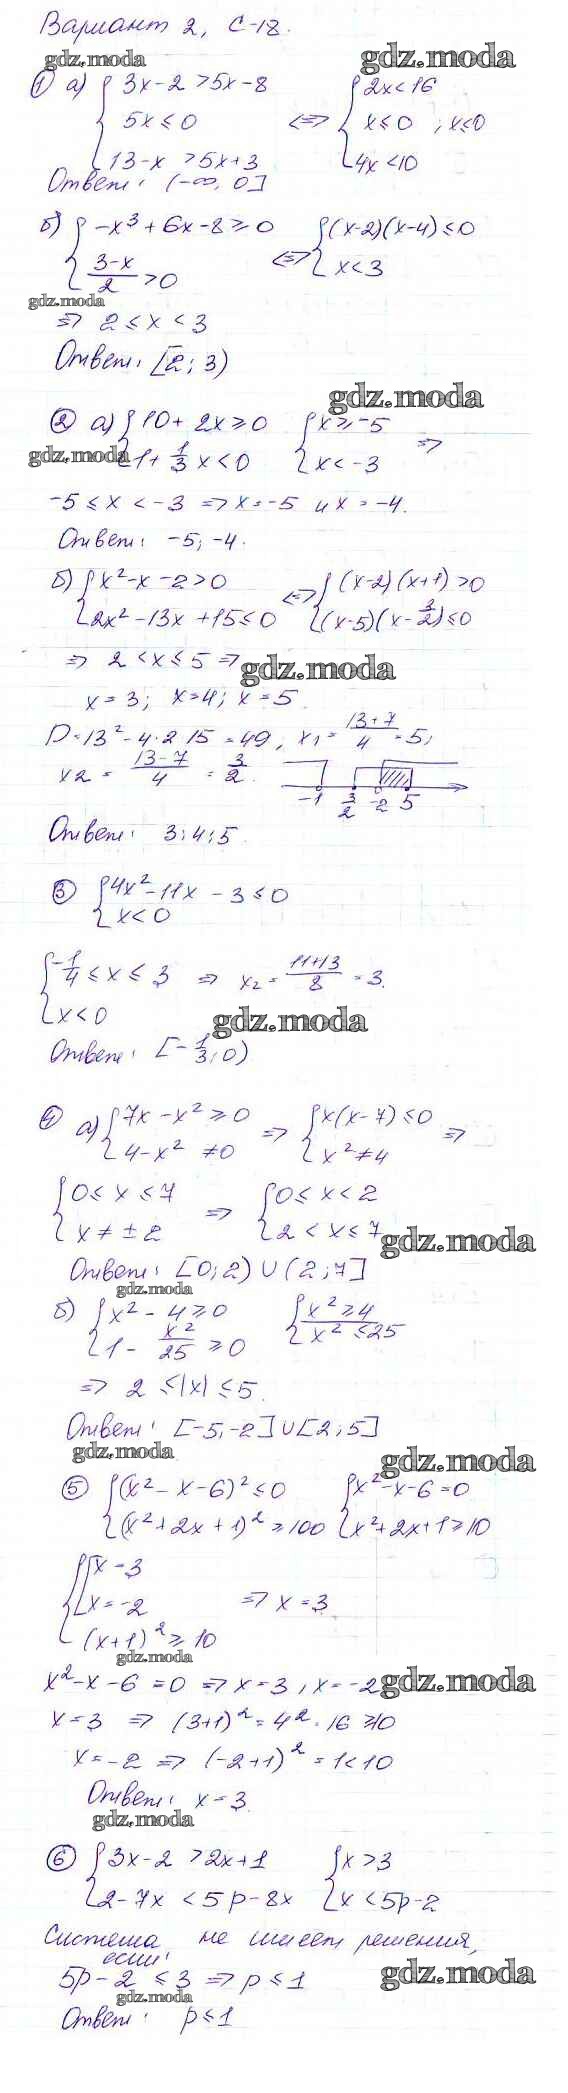 Вариант 2, С-18.
gdz.moda gdz.moda
① а) { 3x-2 > 5x-8 { 2x<16
5x ≤ 0 <=> x ≤ 0 ; x≤0
13-x > 5x+3 4x<10
Ответ: (-∞, 0]
б) { -x³ + 6x-8 ≥ 0 { (x-2)(x-4) ≤ 0
(3-x)/2 > 0 <=> x<3
gdz.moda
=> 2 ≤ x < 3
Ответ: [2; 3)
gdz.moda
② а) { 10+2x ≥ 0 { x ≥ -5
gdz.moda 1+ 1/3 x < 0 x < -3 =>
-5 ≤ x < -3 => x = -5 и x = -4.
Ответ: -5; -4.
б) { x²-x-2>0 <=> { (x-2)(x+1) > 0
2x²-13x+15≤0 (x-5)(x-3/2) ≤ 0
=> 2 < x ≤ 5 =>
gdz.moda
x=3; x=4; x=5.
D=13²-4·2·15 = 49, x₁ = (13+7)/4 = 5;
x2 = (13-7)/4 = 3/2.
-1 3/2 -2 5
Ответ: 3; 4; 5.
③ { 4x²-11x-3 ≤ 0
x<0
{ -1/4 ≤ x ≤ 3 => x₂ = (11+13)/8 = 3.
x<0
gdz.moda
Ответ: [-1/3; 0)
④ а) { 7x-x² ≥ 0 => { x(x-7) ≤ 0 =>
4-x² ≠ 0 x² ≠ 4
{ 0 ≤ x ≤ 7 => { 0 ≤ x < 2
x ≠ ± 2 2 < x ≤ 7
gdz.moda
Ответ: [0; 2) ∪ (2; 7]
gdz.moda
б) { x²-4 ≥ 0 { x² ≥ 4
1 - x²/25 ≥ 0 x² ≤ 25
=> 2 ≤ |x| ≤ 5.
Ответ: [-5; -2] ∪ [2; 5]
gdz.moda gdz.moda
⑤ { (x²-x-6)² ≤ 0 { x²-x-6=0
(x²+2x+1)² ≥ 100 x²+2x+1 ≥ 10
{ [ x=3
x=-2 => x=3
(x+1)² ≥ 10
gdz.moda
x²-x-6=0 => x=3, x=-2
gdz.moda
x=3 => (3+1)² = 4² = 16 ≥ 10
x=-2 => (-2+1)² = 1 < 10
Ответ: x=3.
gdz.moda
⑥ { 3x-2 > 2x+1 { x > 3
2-7x < 5p-8x x < 5p-2
Система не имеет решения,
если:
5p-2 ≤ 3 => p ≤ 1
gdz.moda gdz.moda
Ответ: p≤1